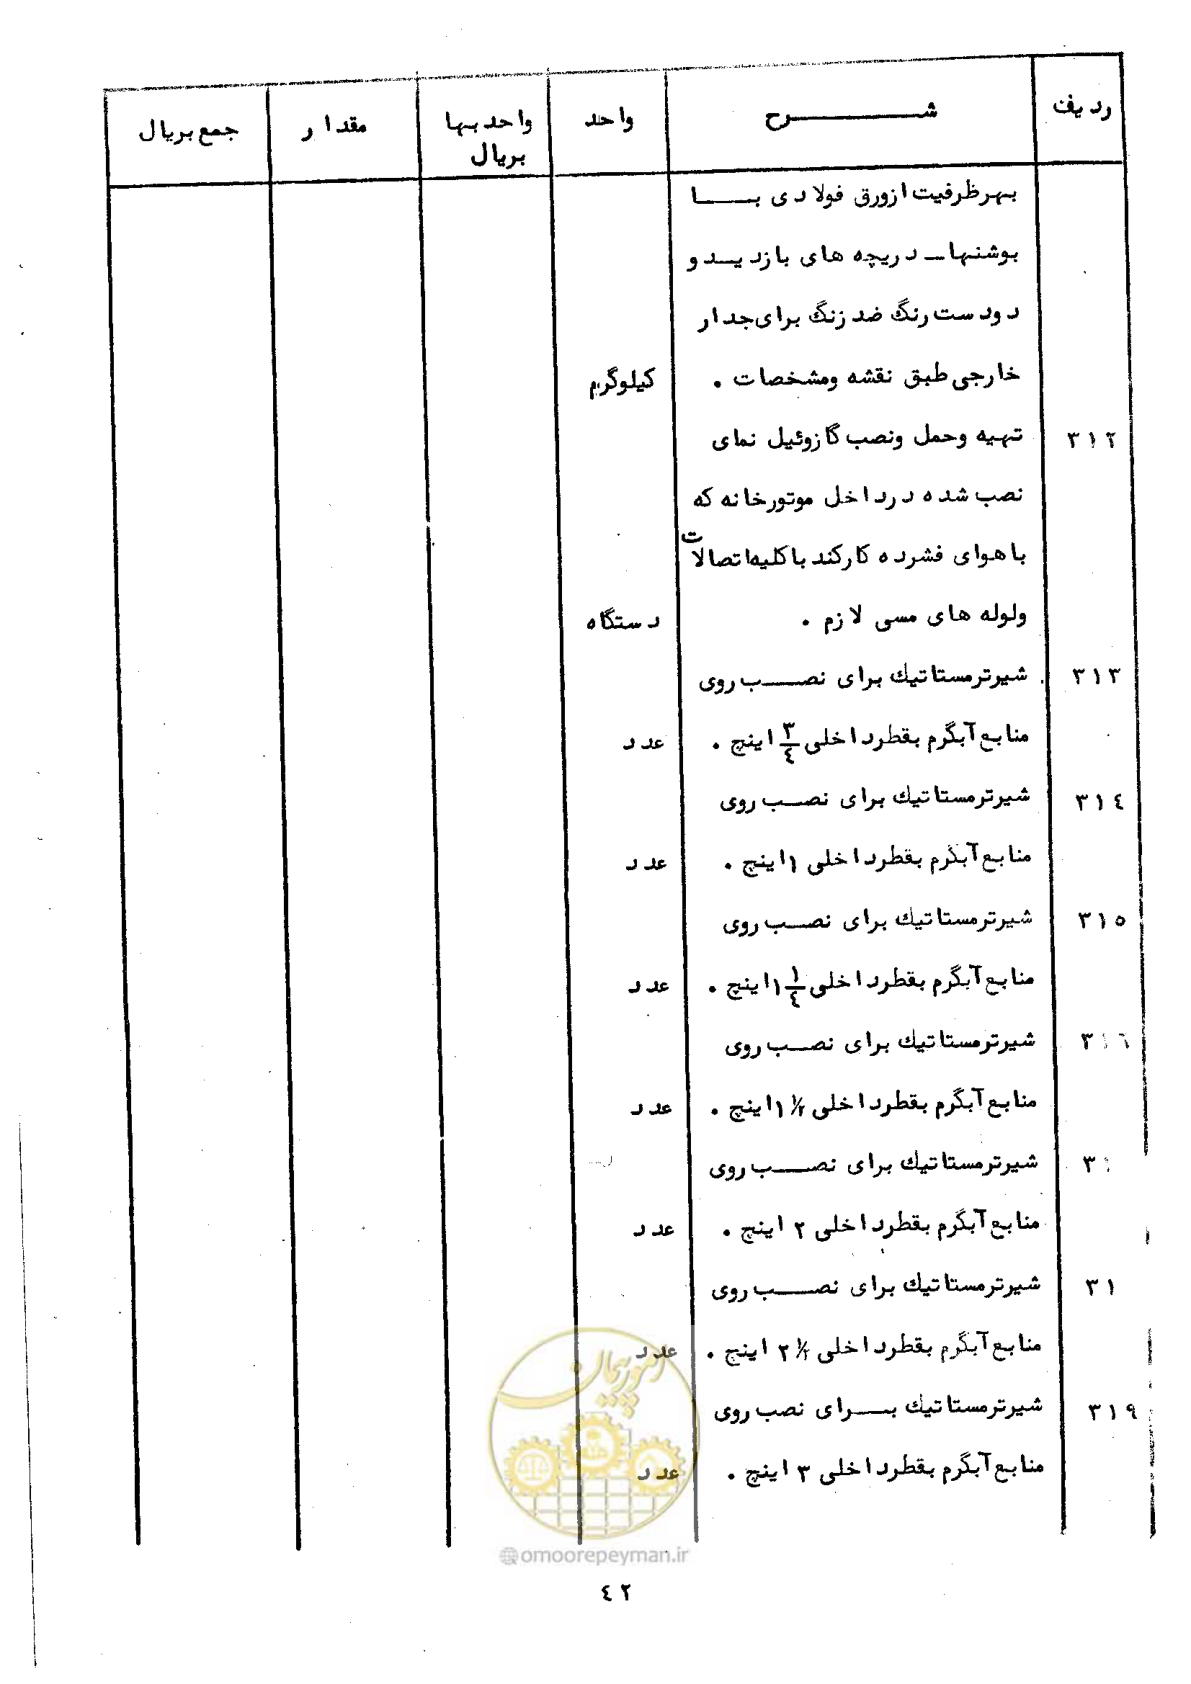 ردیف شــــرح واحد واحدبها مقدار جمع بریال
بریال
بهرظرفیت ازورق فولادی بــا
بوشنها ـ دریچه های بازدیــدو
دودست رنگ ضد زنگ برای جدار
خارجی طبق نقشه ومشخصات . کیلوگرم
۳۱۲ تهیه وحمل ونصب گازوئیل نمای
نصب شده درداخل موتورخانه که
باهوای فشرده کارکند باکلیه اتصالات
ولوله های مسی لازم . دستگاه
۳۱۳ شیرترمستاتیك برای نصــب روی
منابع آبگرم بقطرداخلی ۳/٤ اینچ . عدد
۳۱٤ شیرترمستاتیك برای نصــب روی
منابع آبگرم بقطرداخلی ۱ اینچ . عدد
۳۱٥ شیرترمستاتیك برای نصــب روی
منابع آبگرم بقطرداخلی ۱ ۱/٤ اینچ . عدد
۳۱٦ شیرترمستاتیك برای نصــب روی
منابع آبگرم بقطرداخلی ۱ ۱/۲ اینچ . عدد
۳۱ شیرترمستاتیك برای نصــب روی
منابع آبگرم بقطرداخلی ۲ اینچ . عدد
۳۱ شیرترمستاتیك برای نصــب روی
منابع آبگرم بقطرداخلی ۲ ۱/۲ اینچ . عدد
۳۱۹ شیرترمستاتیك بــرای نصب روی
منابع آبگرم بقطرداخلی ۳ اینچ . عدد
امور پیمان
@omoorepeyman.ir
٤۲